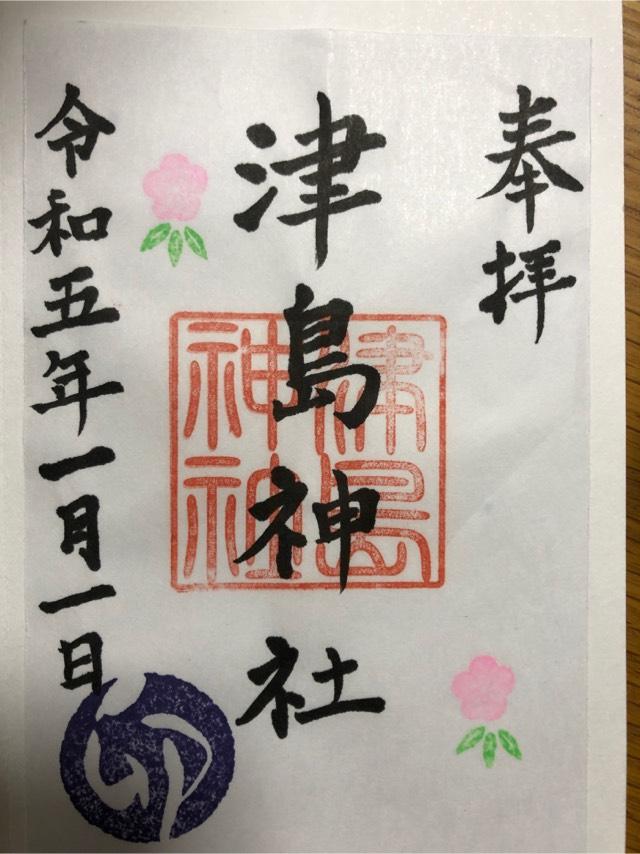 奉拝
津島神社
津島神社
令和五年一月一日
卯